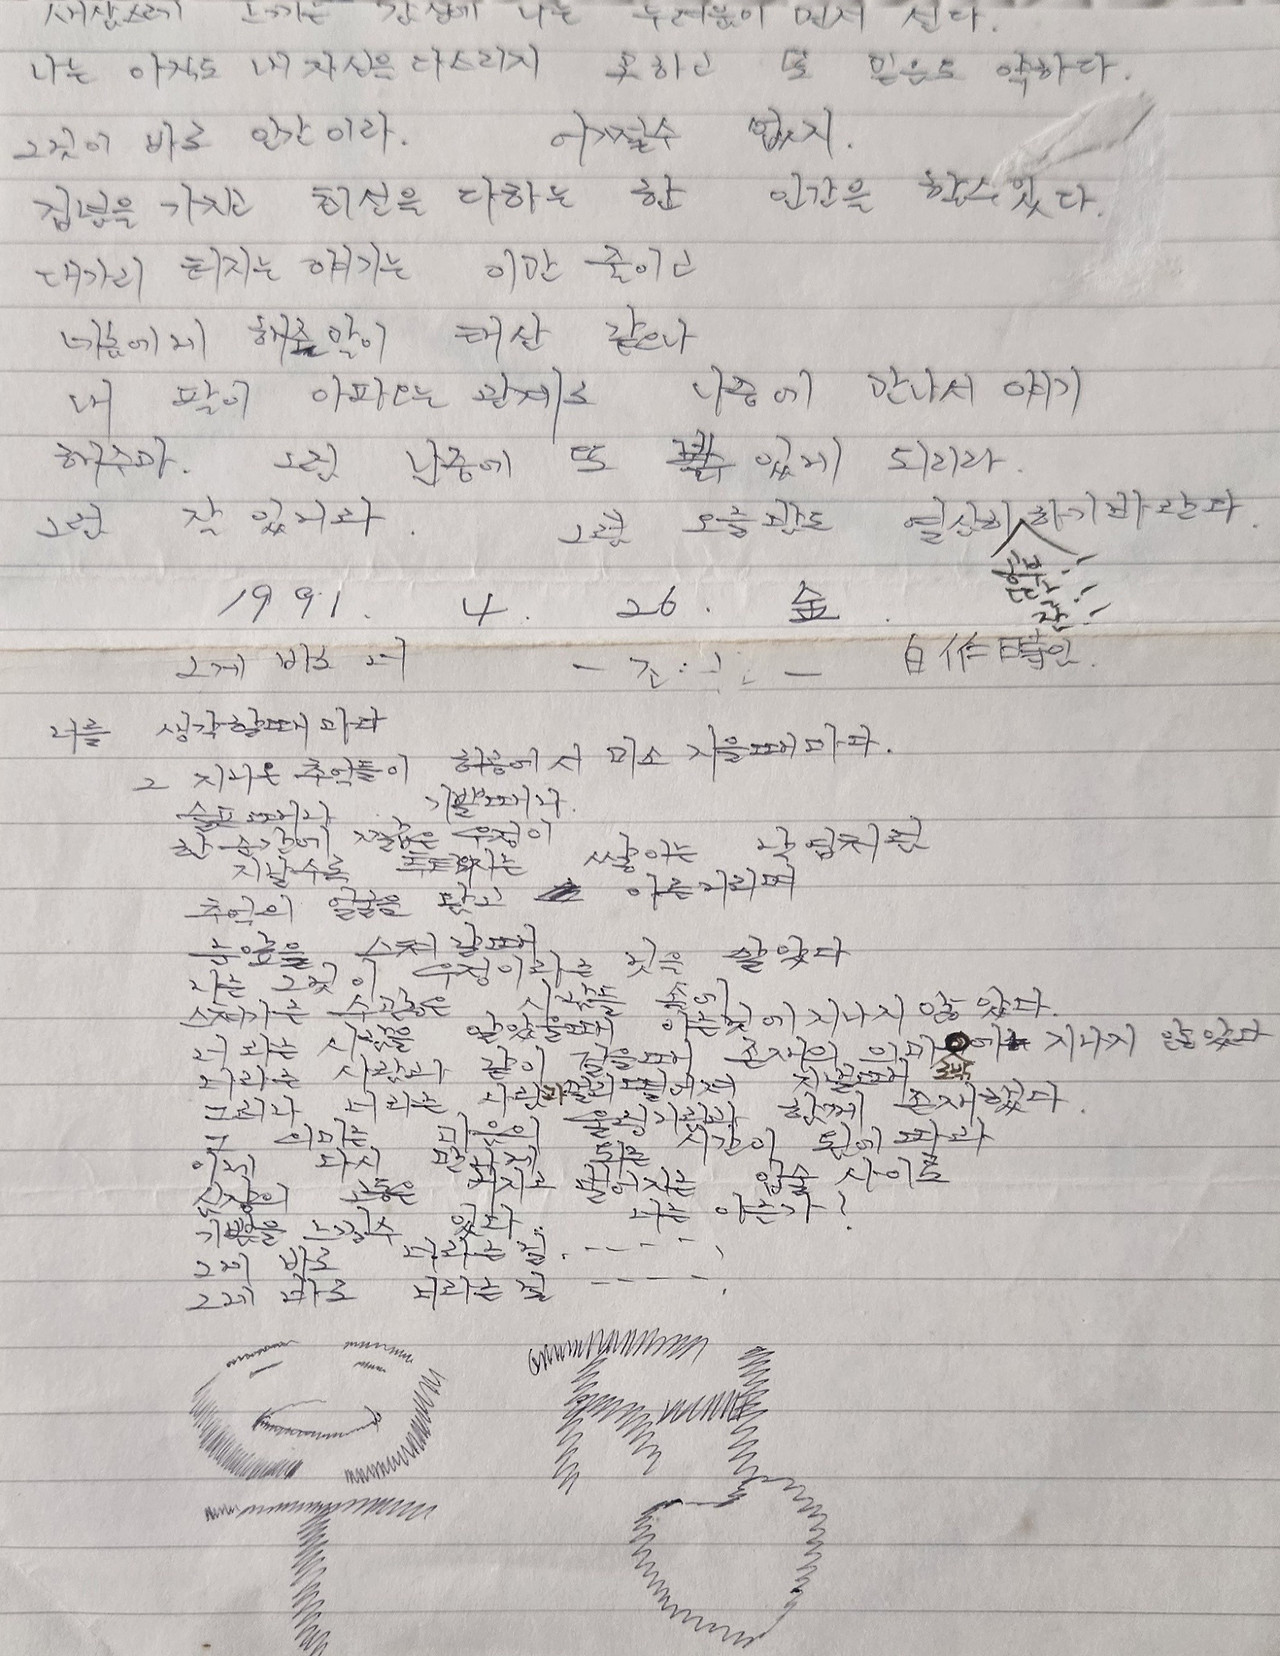 새삼스레 느끼는 감상에 나는 두려움이 먼저 선다.
나는 아직도 내 자신을 다스리지 못하고 또 믿음도 약하다.
그것이 바로 인간이라. 어쩔수 없지.
집념을 가지고 최선을 다하는 한 인간을 할수 있다.
대가리 터지는 얘기는 이만 줄이고
너희에게 해줄 말이 태산 같으나
내 팔이 아파오는 관계로 나중에 만나서 얘기
해주마. 그럼 난중에 또 볼수 있게 되리라.
그럼 잘 있거라. 그럼 오늘밤도 열심히 하기 바란다.
공부
1991. 4. 26. 金.
그게 바로 너 自作時인.
너를 생각할때마다
그 지나온 추억들이 허공에서 미소 지을때마다.
슬플때나 기쁠때나.
한 순간에 짧은 우정이
지날수록 쌓이는 낙엽처럼
추억의 얼굴을 닮고 아른거리며
눈앞을 스쳐 갈때
나는 그것이 우정이라는 것을 알았다
스쳐가는 수많은 사람들 속에
너라는 사람을 알았을때 아는 것에 지나지 않았다.
너라는 사람과 같이 걸을때 존재의 의미 에 지나지 않았다
그러나 너라는 사람과 멀리 떨어져 지낼때
그 의미는 마음의 울렁거림과 함께 존재했다.
이제 다시 만나게 되는 시간이 됨에 따라
심장의 고동은 커지고 떨어지는 입술 사이로
기쁨을 느낄수 있다. 너는 아는가?
그게 바로 너라는 걸. - - - - .
그게 바로 너라는 걸 - - - - .